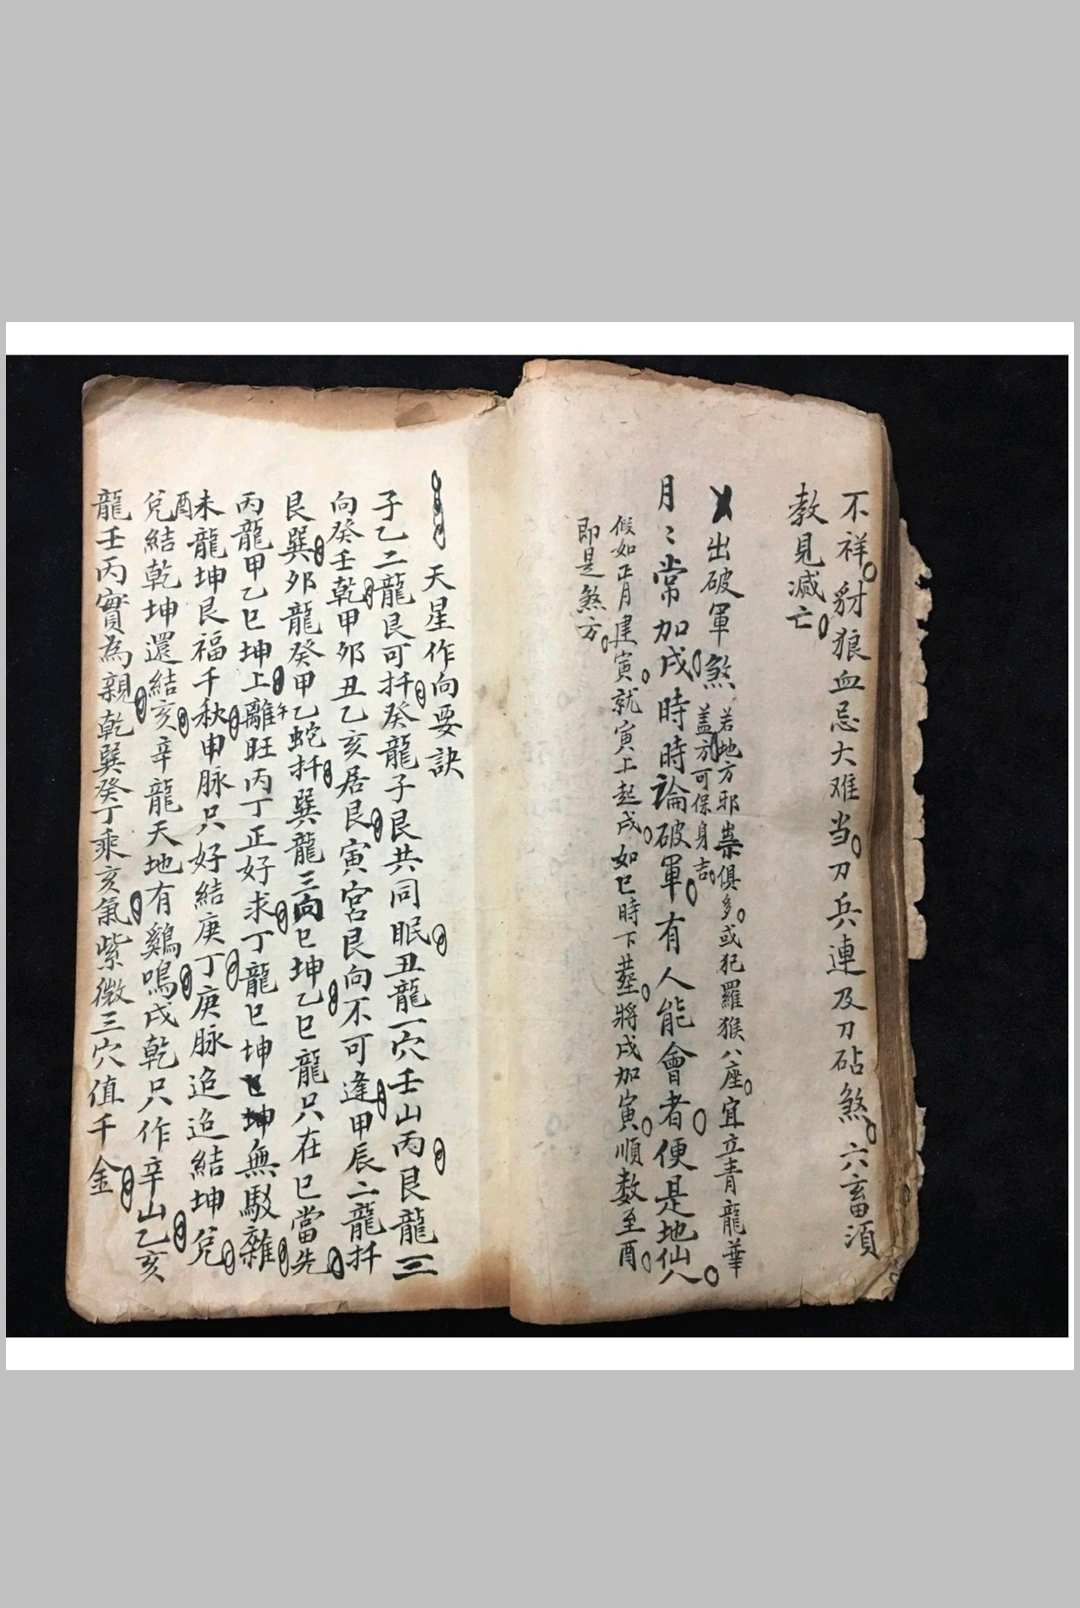 不祥豺狼血忌大难当刀兵連及刀砧煞六畜須
教見滅亡
出破軍煞
若地方邪祟俱多或犯羅猴八座宜立青龍華
盖方可保身吉
月〻常加戌時時論破軍有人能會者便是地仙人
假如正月建寅就寅上起戌如巳時下塟將戌加寅順數至酉
即是煞方
天星作向要訣
子乙二龍艮可扦癸龍子艮共同眠丑龍一穴壬山丙艮龍三
向癸壬乾甲夘丑乙亥居艮寅宮艮向不可逢甲辰二龍扦
艮巽夘龍癸甲乙蛇扦巽龍三向巳坤乙巳龍只在巳當先
丙龍甲乙巳坤上離午旺丙丁正好求丁龍巳坤無駁雜
未龍坤艮福千秋申脉只好結庚丁庚脉迢迢結坤兌
兌酉結乾坤還結亥辛龍天地有鷄鳴戌乾只作辛山乙亥
龍壬丙實為親乾巽癸丁乘亥氣紫微三穴值千金